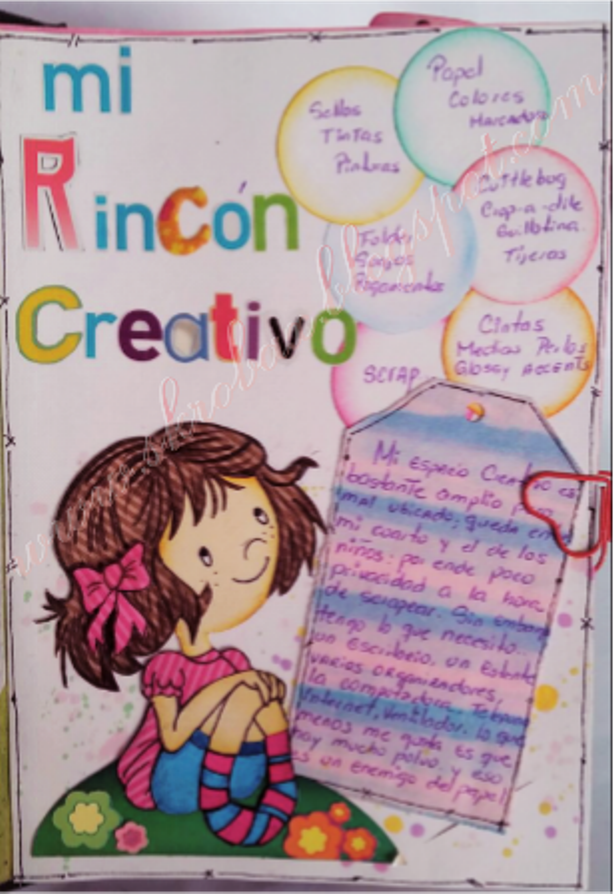 mi
Rincón
Creativo
Sellos
Tintas
Pinturas
Papel
Colores
Marcadores
Cuttlebug
Crop-a-dile
Guillotina
Tijeras
Folder
Pegamentos
Cintas
Medias Perlas
Glossy Accents
SCRAP
Mi espacio Creativo es
bastante amplio pero
mal ubicado, queda entre
mi cuarto y el de los
niños. por ende poco
privacidad a la hora
de scrapear. Sin embargo
tengo lo que necesito.
un Escritorio, un Estante
varios organizadores,
la computadora,
Internet, Ventilador. lo que
menos me gusta es que
hay mucho polvo, y eso
es un enemigo del papel